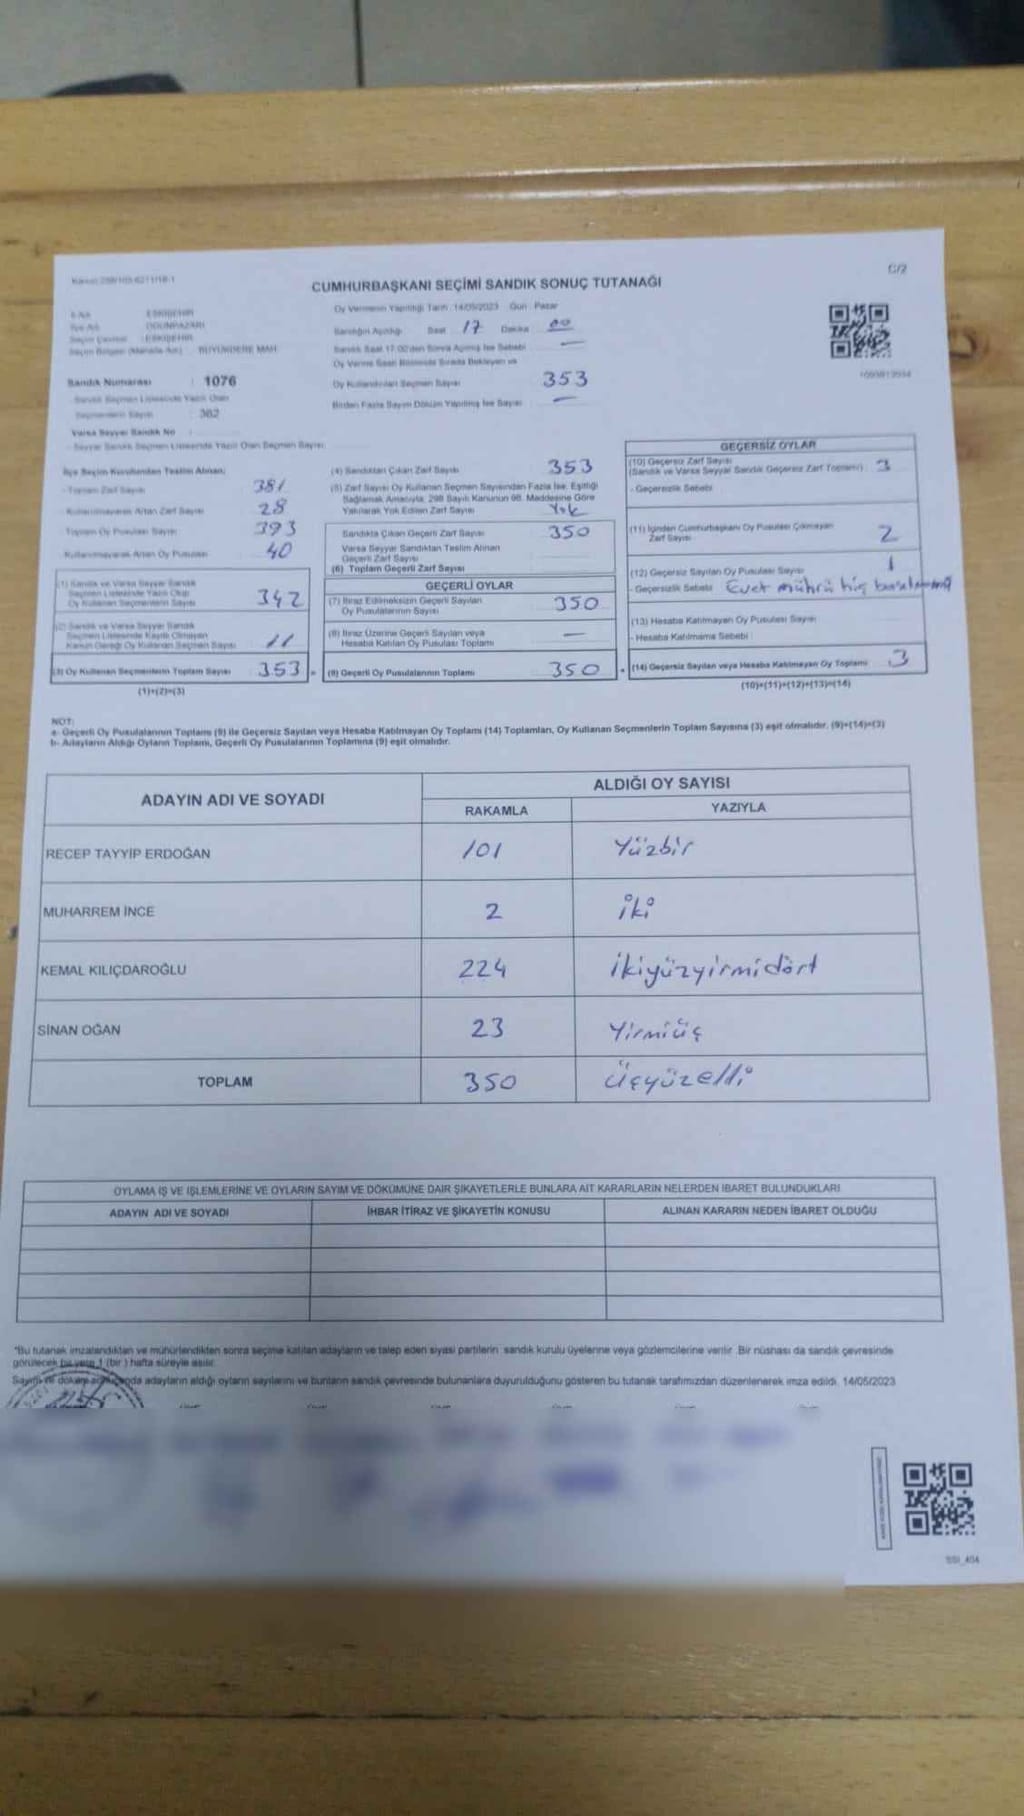 C/2
CUMHURBAŞKANI SEÇİMİ SANDIK SONUÇ TUTANAĞI
Oy Vermenin Yapıldığı Tarih 14/05/2023 Gün Pazar
İli Adı ESKİŞEHİR
İlçe Adı ODUNPAZARI
Seçim Çevresi ESKİŞEHİR
Seçim Bölgesi (Mahalle Adı) BÜYÜKDERE MAH.
Sandığın Açıldığı Saat 17 Dakika 00
Sandık Saat 17:00'den Sonra Açılmış İse Sebebi —
Oy Verme Saati Bitiminde Sırada Bekleyen ve
Sandık Numarası : 1076
Oy Kullandırılan Seçmen Sayısı 353
Sandık Seçmen Listesinde Yazılı Olan
Seçmenlerin Sayısı : 382
Birden Fazla Sayım Döküm Yapılmış İse Sayısı —
Varsa Seyyar Sandık No :
- Seyyar Sandık Seçmen Listesinde Yazılı Olan Seçmen Sayısı
İlçe Seçim Kurulundan Teslim Alınan;
- Toplam Zarf Sayısı 381
- Kullanılmayarak Artan Zarf Sayısı 28
- Toplam Oy Pusulası Sayısı 393
- Kullanılmayarak Artan Oy Pusulası 40
(1) Sandık ve Varsa Seyyar Sandık
Seçmen Listesinde Yazılı Olup
Oy Kullanan Seçmenlerin Sayısı 342
(2) Sandık ve Varsa Seyyar Sandık
Seçmen Listesinde Kayıtlı Olmayan
Kanun Gereği Oy Kullanan Seçmen Sayısı 11
(3) Oy Kullanan Seçmenlerin Toplam Sayısı 353 =
(1)+(2)=(3)
(4) Sandıktan Çıkan Zarf Sayısı 353
(5) Zarf Sayısı Oy Kullanan Seçmen Sayısından Fazla İse, Eşitliği
Sağlamak Amacıyla, 298 Sayılı Kanunun 98. Maddesine Göre
Yakılarak Yok Edilen Zarf Sayısı Yok
Sandıkta Çıkan Geçerli Zarf Sayısı 350
Varsa Seyyar Sandıktan Teslim Alınan
Geçerli Zarf Sayısı
(6) Toplam Geçerli Zarf Sayısı
GEÇERLİ OYLAR
(7) İtiraz Edilmeksizin Geçerli Sayılan
Oy Pusulalarının Sayısı 350
(8) İtiraz Üzerine Geçerli Sayılan veya
Hesaba Katılan Oy Pusulası Toplamı —
(9) Geçerli Oy Pusulalarının Toplamı 350 +
GEÇERSİZ OYLAR
(10) Geçersiz Zarf Sayısı
(Sandık ve Varsa Seyyar Sandık Geçersiz Zarf Toplamı) 3
- Geçersizlik Sebebi
(11) İçinden Cumhurbaşkanı Oy Pusulası Çıkmayan
Zarf Sayısı 2
(12) Geçersiz Sayılan Oy Pusulası Sayısı 1
- Geçersizlik Sebebi Evet mührü hiç
(13) Hesaba Katılmayan Oy Pusulası Sayısı
- Hesaba Katılmama Sebebi
(14) Geçersiz Sayılan veya Hesaba Katılmayan Oy Toplamı 3
(10)+(11)+(12)+(13)=(14)
NOT:
a- Geçerli Oy Pusulalarının Toplamı (9) ile Geçersiz Sayılan veya Hesaba Katılmayan Oy Toplamı (14) Toplamları, Oy Kullanan Seçmenlerin Toplam Sayısına (3) eşit olmalıdır. (9)+(14)=(3)
b- Adayların Aldığı Oyların Toplamı, Geçerli Oy Pusulalarının Toplamına (9) eşit olmalıdır.
ADAYIN ADI VE SOYADI ALDIĞI OY SAYISI
RAKAMLA YAZIYLA
RECEP TAYYİP ERDOĞAN 101 Yüzbir
MUHARREM İNCE 2 iki
KEMAL KILIÇDAROĞLU 224 ikiyüzyirmidört
SİNAN OĞAN 23 Yirmiüç
TOPLAM 350 Üçyüzelli
OYLAMA İŞ VE İŞLEMLERİNE VE OYLARIN SAYIM VE DÖKÜMÜNE DAİR ŞİKAYETLERLE BUNLARA AİT KARARLARIN NELERDEN İBARET BULUNDUKLARI
ADAYIN ADI VE SOYADI İHBAR İTİRAZ VE ŞİKAYETİN KONUSU ALINAN KARARIN NEDEN İBARET OLDUĞU
*Bu tutanak imzalandıktan ve mühürlendikten sonra seçime katılan adayların ve talep eden siyasi partilerin sandık kurulu üyelerine veya gözlemcilerine verilir. Bir nüshası da sandık çevresinde
görülecek bir yere 1 (bir) hafta süreyle asılır.
Sayım ve döküm adayların aldığı oyların sayılarını ve bunların sandık çevresinde bulunanlara duyurulduğunu gösteren bu tutanak tarafımızdan düzenlenerek imza edildi. 14/05/2023
SSI_404